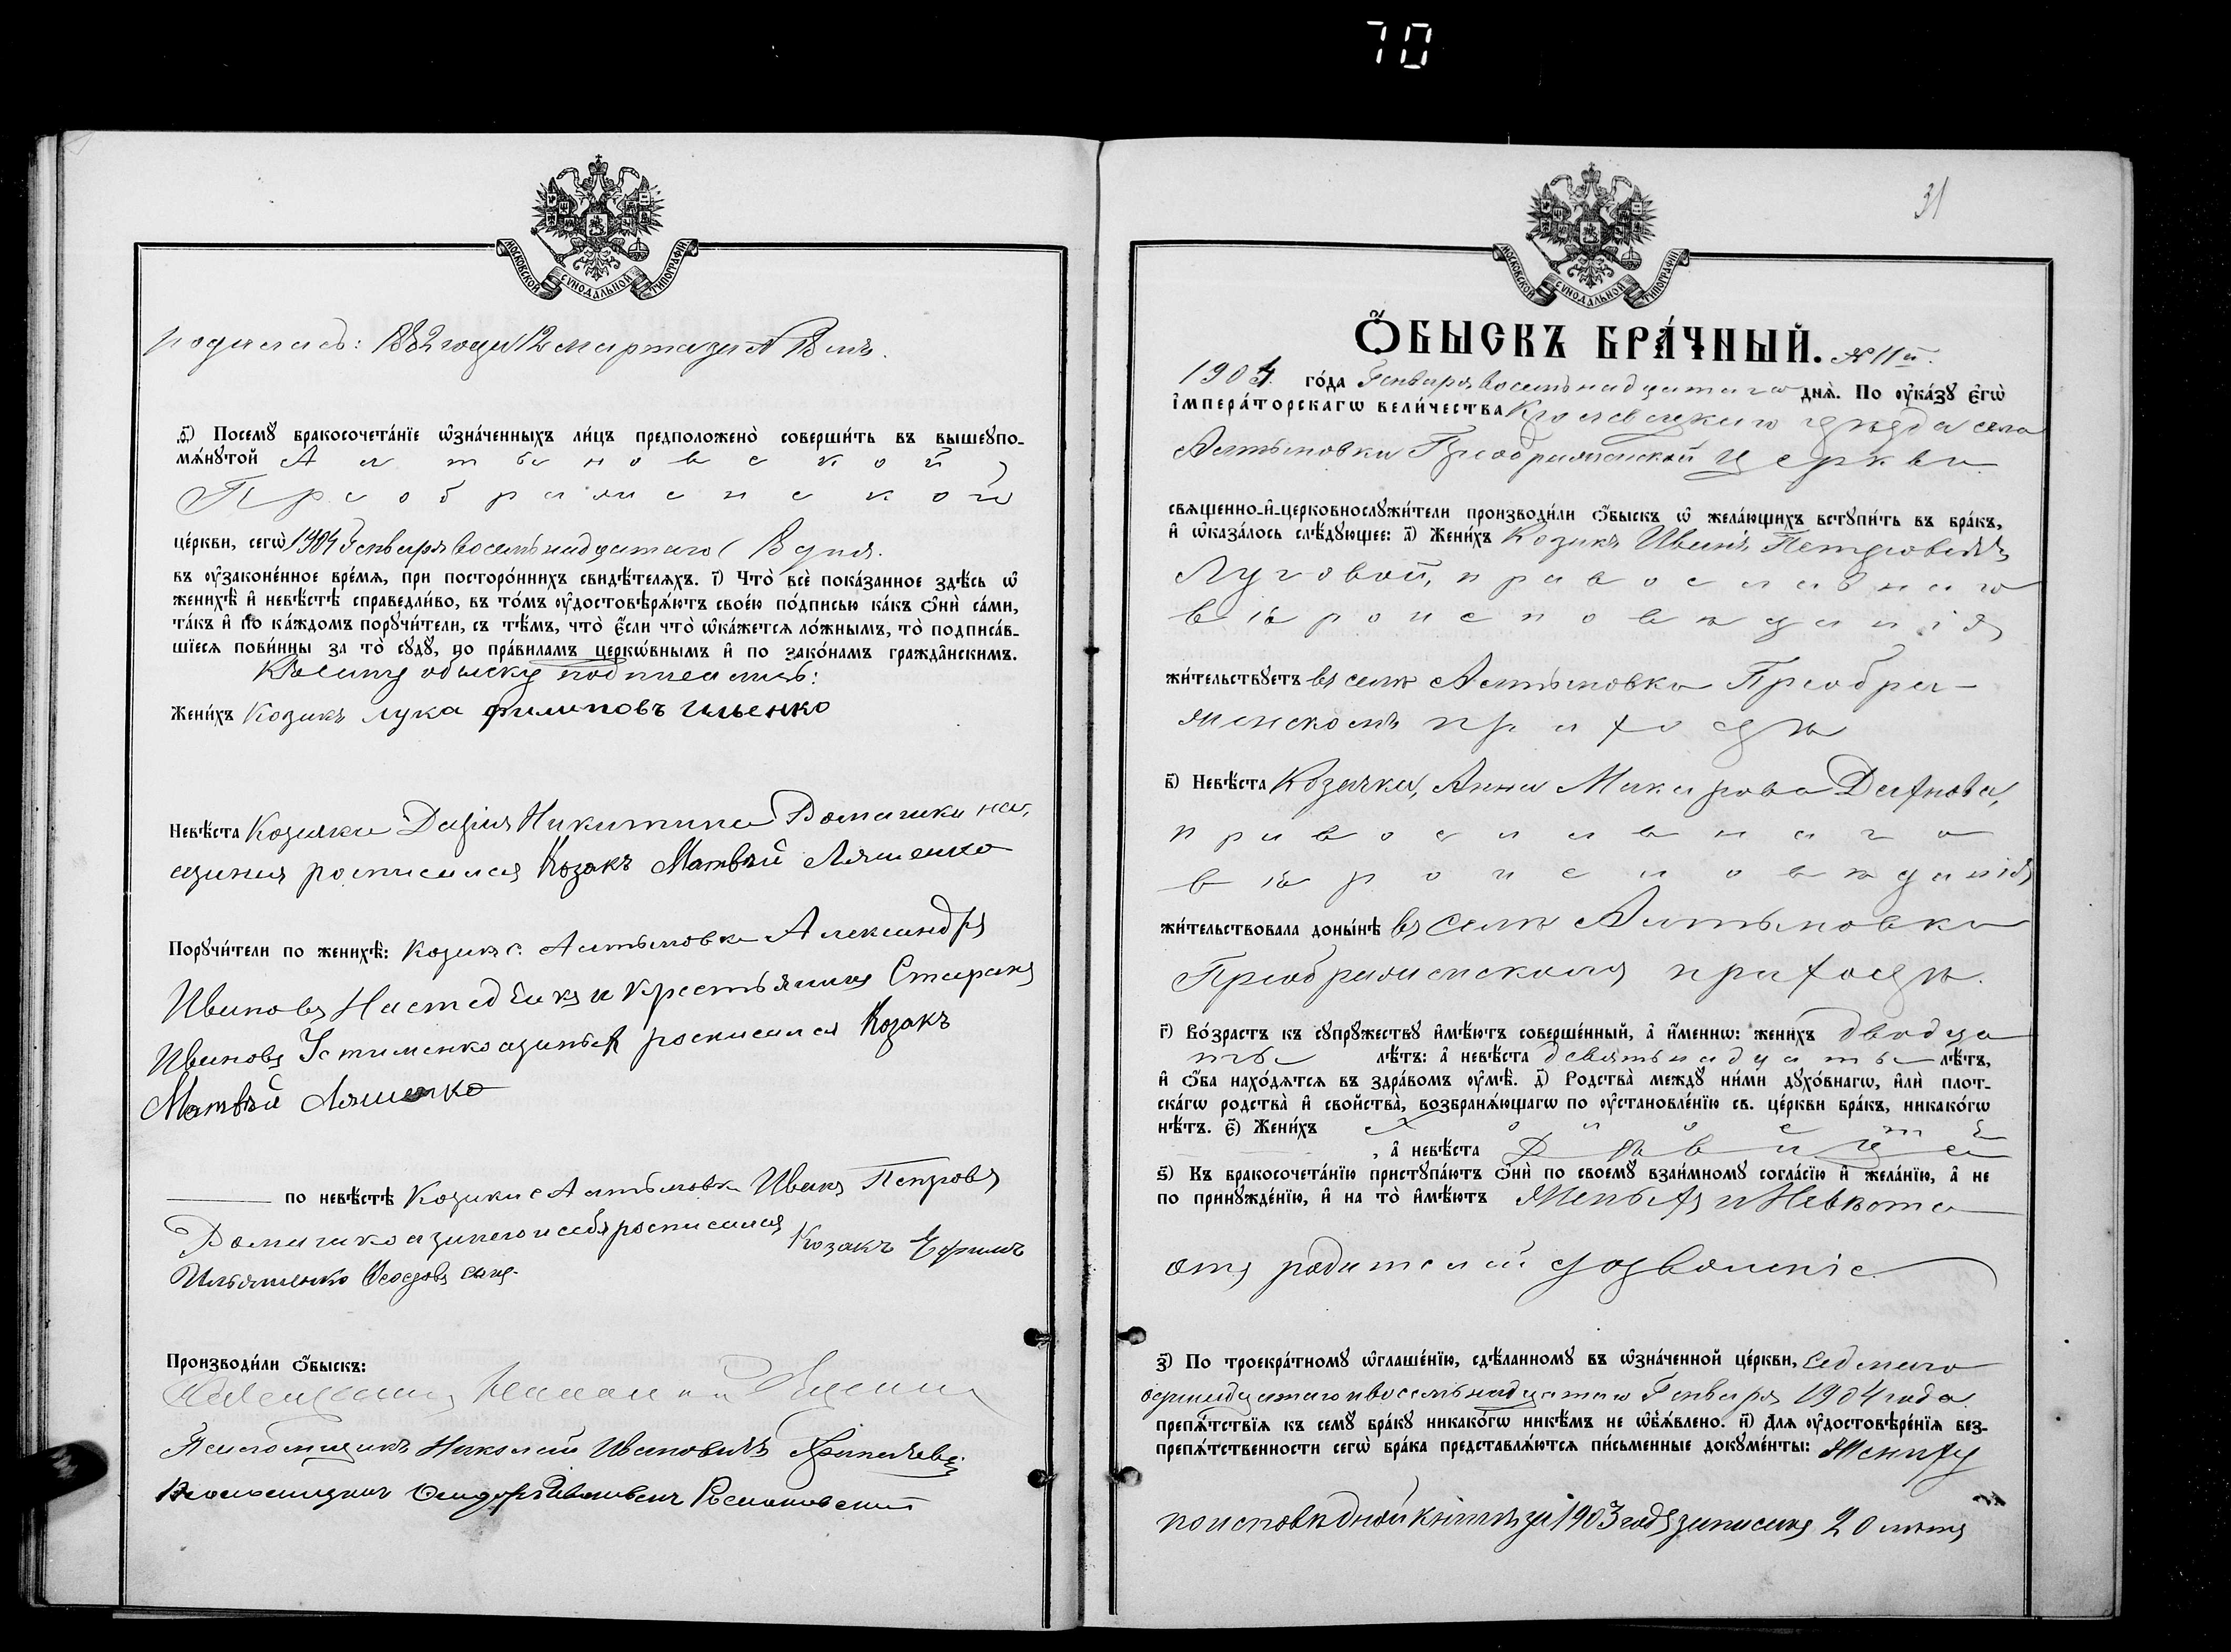 70
МОСКОВСКОЙ СѴНОДАЛЬНОЙ ТИПОГРАФІИ
родилась: 1882 года 12 марта за № 18 мъ.
ѳ҃) Посемꙋ̀ бракосочета́нїе ѡ҆зна́ченныхъ ли́цъ предположено̀ соверши́ть въ вышеꙋпо-
мѧ́нꙋтой Алтыновской
Преображенской
це́ркви, сегѡ̀ 1904 Генваря восемьнадцатаго (18 дня.
въ ᲂу҆законе́нное вре́мѧ, при посторо́ннихъ свидѣ́телѧхъ. і҃) Что̀ всѐ пока́занное здѣ́сь ѡ҆
женихѣ̀ и҆ невѣ́стѣ справедли́во, въ то́мъ ᲂу҆достовѣрѧ́ютъ свое́ю по́дписью ка́къ ѻ҆нѝ са́ми,
та́къ и҆ по ка́ждомъ порꙋчи́тели, съ тѣ́мъ, что̀ є҆́сли что̀ ѡ҆ка́жетсѧ ло́жнымъ, то̀ подписа́в-
шїесѧ пови́нны за то̀ сꙋдꙋ̀, по пра́виламъ церкѡ́внымъ и҆ по зако́намъ гражда̂нскимъ.
Къ сему обыску подписались:
Жени́хъ Козакъ Лука Филиповъ Ильенко
Невѣ́ста Козачка Дарія Никитина Ромашка не,
Козакъ Матвѣй Ляшенко
Порꙋчи́тели по женихѣ̀: Козакъ с. Алтыновки Александръ
Ивановъ и крестьянинъ
Ивановъ Устименко росписался Козакъ
Матвѣй Ляшенко
по невѣ́стѣ Козаки с Алтыновки Иванъ Петровъ
Ромашко росписался Козакъ Ефимъ
Ильяшенко
Производи́ли ѻ҆́быскъ:
Псаломщикъ Николай Ивановичъ
Псаломщикъ
31
МОСКОВСКОЙ СѴНОДАЛЬНОЙ ТИПОГРАФІИ
Ѻ҆́БЫСКЪ БРА́ЧНЫЙ. № 11й.
1904 го́да Генваря восемьнадцатаго днѧ̀. По ᲂу҆ка́зꙋ є҆гѡ̀
і҆мпера́торскагѡ вели́чества Кролевецкаго уѣзда села
Алтыновки Преображенской церкви
свѧщенно-и҆-церковнослꙋжи́тели производи́ли ѻ҆́быскъ ѡ҆ жела́ющихъ встꙋпи́ть въ бра́къ,
и҆ ѡ҆каза́лось слѣ́дꙋющее: а҃) Жени́хъ Козакъ Иванъ Петровичъ
Луговой, православнаго
вѣроисповѣданія
жи́тельствꙋетъ въ селѣ Алтыновкѣ Преобра-
женскомъ приходѣ
в҃) Невѣ́ста Козачка, Анна Макарова Дахнова,
православнаго
вѣроисповѣданія
жи́тельствовала доны́нѣ въ селѣ Алтыновкѣ
Преображенскомъ приходѣ.
г҃) Во́зрастъ къ сꙋпрꙋ́жествꙋ и҆мѣ́ютъ соверше́нный, а҆ и҆́меннѡ: жени́хъ двадца
ть лѣ́тъ: а҆ невѣ́ста девятьнадцать лѣ́тъ,
и҆ ѻ҆́ба нахо́дѧтсѧ въ здра́вомъ ᲂу҆мѣ̀. д҃) Родства̀ междꙋ̀ ни́ми дꙋхо́внагѡ, и҆лѝ плот-
ска́гѡ родства̀ и҆ сво́йства̀, возбранѧ́ющагѡ по ᲂу҆становле́нїю св. це́ркви бра́къ, никако́гѡ
нѣ́тъ. є҃) Жени́хъ Холостъ
, а҆ невѣ́ста Дѣвица
ѕ҃) Къ бракосочета́нїю пристꙋпа́ютъ ѻ҆нѝ по своемꙋ̀ взаи́мномꙋ согла́сїю и҆ жела́нїю, а҆ не
по принꙋжде́нїю, и҆ на то̀ и҆мѣ́ютъ Женихъ и Невѣста
отъ родителей дозволеніе
з҃) По троекра́тномꙋ ѡ҆глаше́нїю, сдѣ́ланномꙋ въ ѡ҆зна́ченной це́ркви, седмаго
одинадцатаго и восемьнадцатаго Генваря 1904 года.
препѧ́тствїѧ къ семꙋ̀ бра́кꙋ никако́гѡ никѣ́мъ не ѡ҆б̾ѧ́влено. и҃) Длѧ ᲂу҆достовѣре́нїѧ без-
препѧ́тственности сегѡ̀ бра́ка представлѧ́ютсѧ пи́сьменные докꙋме́нты: Жениху
по исповѣдной книгѣ за 1903 годъ записанъ 20 лѣтъ